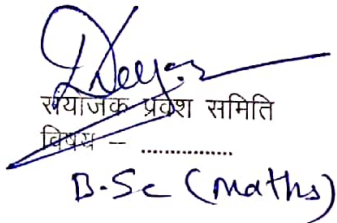 संयोजक प्रवेश समिति
विषय – ...............
B.Sc (Maths)